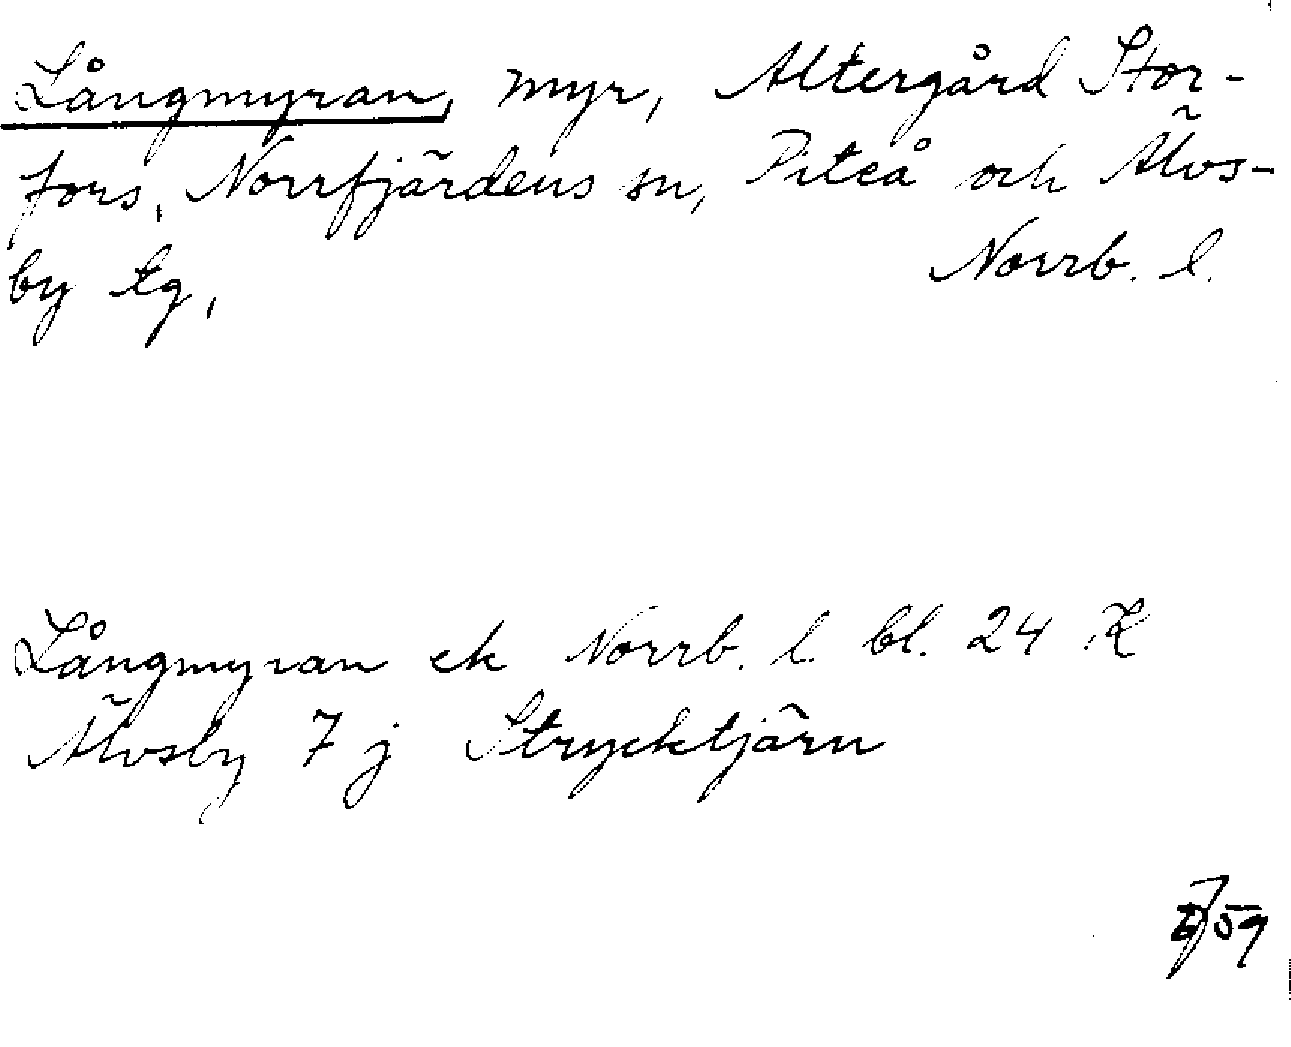 Långmyran, myr, Altergård Stor-
fors, Norrfjärdens sn, Piteå och Älvs-
by tg, Norrb. l.
Långmyran ek Norrb. l. bl. 24 K
Älvsby 7 j Strycktjärn